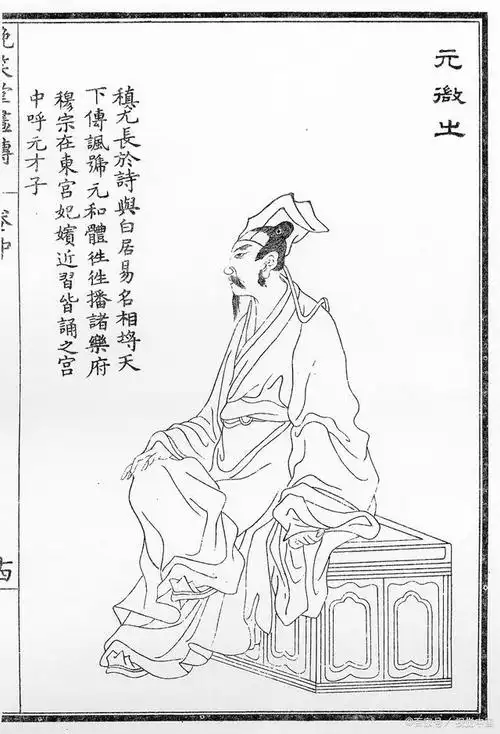 元微之
稹尤長於詩與白居易名相埒天
下傳諷號元和體徃徃播諸樂府
穆宗在東宮妃嬪近習皆誦之宮
中呼元才子
晚笑堂畫傳
卷中